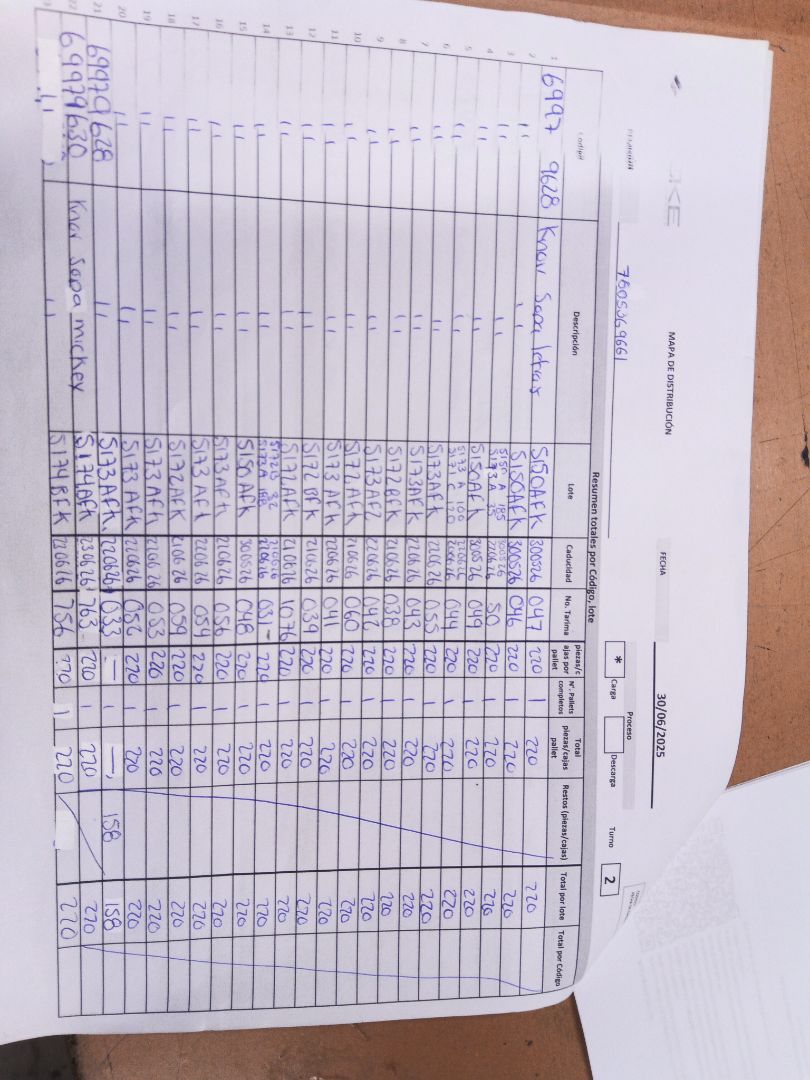 MAPA DE DISTRIBUCIÓN
7505369661
FECHA 30/06/2025
Proceso
* Carga Descarga
Turno 2
Resumen totales por Código, lote
Código Descripción Lote Caducidad No. Tarima piezas/cajas por pallet N°. Pallets completos Total piezas/cajas pallet Restos (piezas/cajas) Total por lote Total por Código
1 6997 9628 Knorr Sopa letras 5150AFK 300526 047 220 1 220 220
2 " " 5150AFK 300526 046 220 1 220 220
3 " " 5150 A 185 5173 A 35 300526 220626 50 220 1 220 220
4 " " 5150AFK 300526 049 220 1 220 220
5 " " 5173 A 100 5171 C 120 220626 200626 044 220 1 220 220
6 " " 5173AFK 220626 055 220 1 220 220
7 " " 5173AFK 220626 043 220 1 220 220
8 " " 5172BFK 210626 038 220 1 220 220
9 " " 5173AFK 220626 042 220 1 220 220
10 " " 5172AFK 210626 060 220 1 220 220
11 " " 5173AFK 220626 041 220 1 220 220
12 " " 5172BFK 210626 039 220 1 220 220
13 " " 5172AFK 210626 1076 220 1 220 220
14 " " 5172B 32 5173A 188 210626 220626 031 220 1 220 220
15 " " 5150AFK 300526 048 220 1 220 220
16 " " 5173AFK 220626 056 220 1 220 220
17 " " 5173AFK 220626 054 220 1 220 220
18 " " 5172AFK 210626 059 220 1 220 220
19 " " 5173AFK 220626 053 220 1 220 220
20 " " 5173AFK 220626 052 220 1 220 220
21 69979628 " 5173AFK 220626 033 — — 158 158
22 69979630 Knor Sopa mickey 5174AFK 230626 763 220 1 220 220
" " 5174BFK 230626 756 220 1 220 220